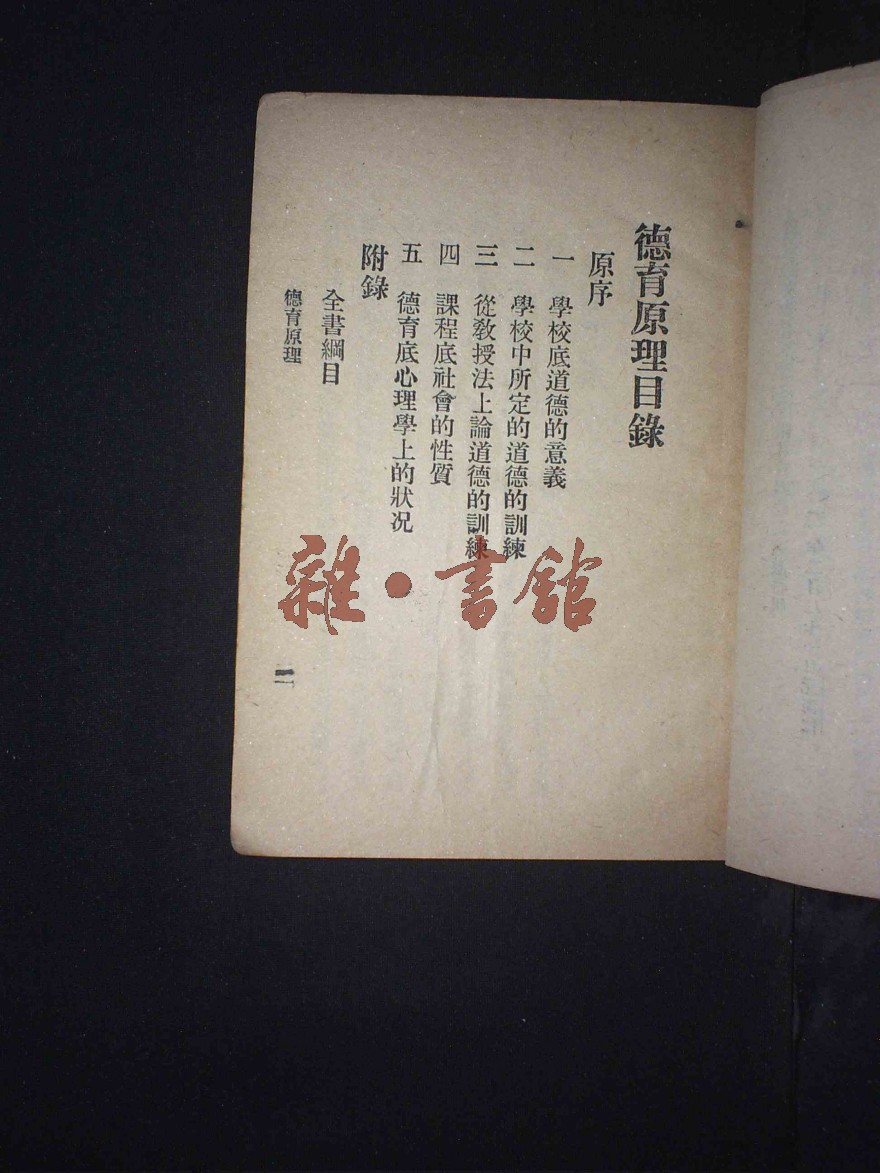 德育原理目錄
原序
一 學校底道德的意義
二 學校中所定的道德的訓練
三 從教授法上論道德的訓練
四 課程底社會的性質
五 德育底心理學上的狀況
附錄
全書綱目
德育原理
雜·書館